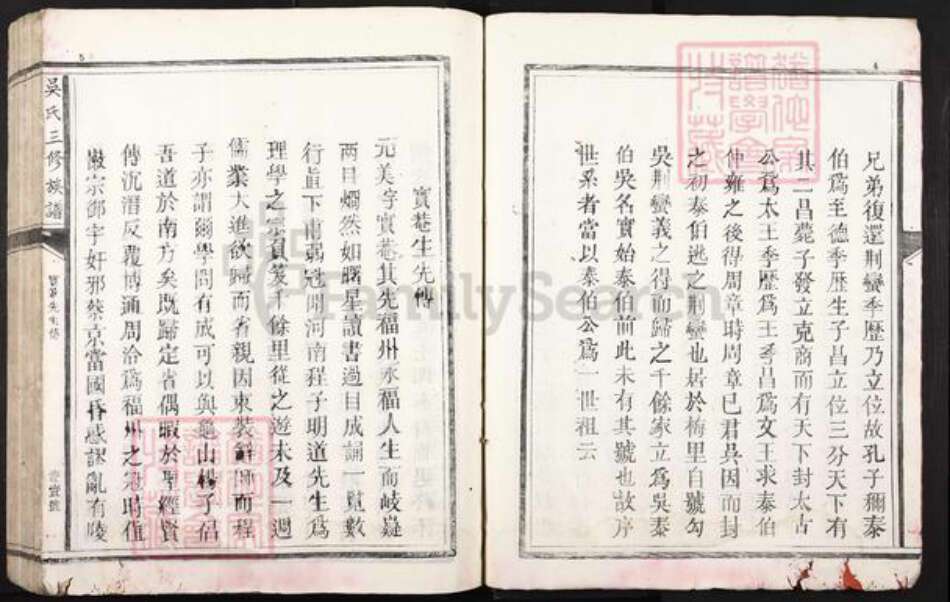 兄弟復還荆蠻季歷乃立位故孔子稱泰
伯爲至德季歷生子昌立位三分天下有
其二昌薨子發立克商而有天下封太古
公爲太王季歷爲王季昌爲文王求泰伯
仲雍之後得周章時周章已君吳因而封
之初泰伯逃之荆蠻也居於梅里自號勾
吳荆蠻義之得而歸之千餘家立爲吳泰
伯吳名實始泰伯前此未有其號也故序
世系者當以泰伯公爲一世祖云
4
5
吳氏三修族譜
實菴先生傳
壹號
實菴生先傳
元美字實菴其先福州永福人生而岐嶷
兩目爛然如曙星讀書過目成誦一覽數
行直下甫弱冠聞河南程子明道先生爲
理學之宗負笈千餘里從之遊未及一週
儒業大進欲歸而省親因束裝辭歸而程
子亦謂爾學問有成可以與龜山楊子倡
吾道於南方矣既歸定省偶暇於聖經賢
傳沉潛反覆博通周洽爲福州之冠時值
徽宗御宇奸邪蔡京當國昏惑謬亂有陵
FamilySearch